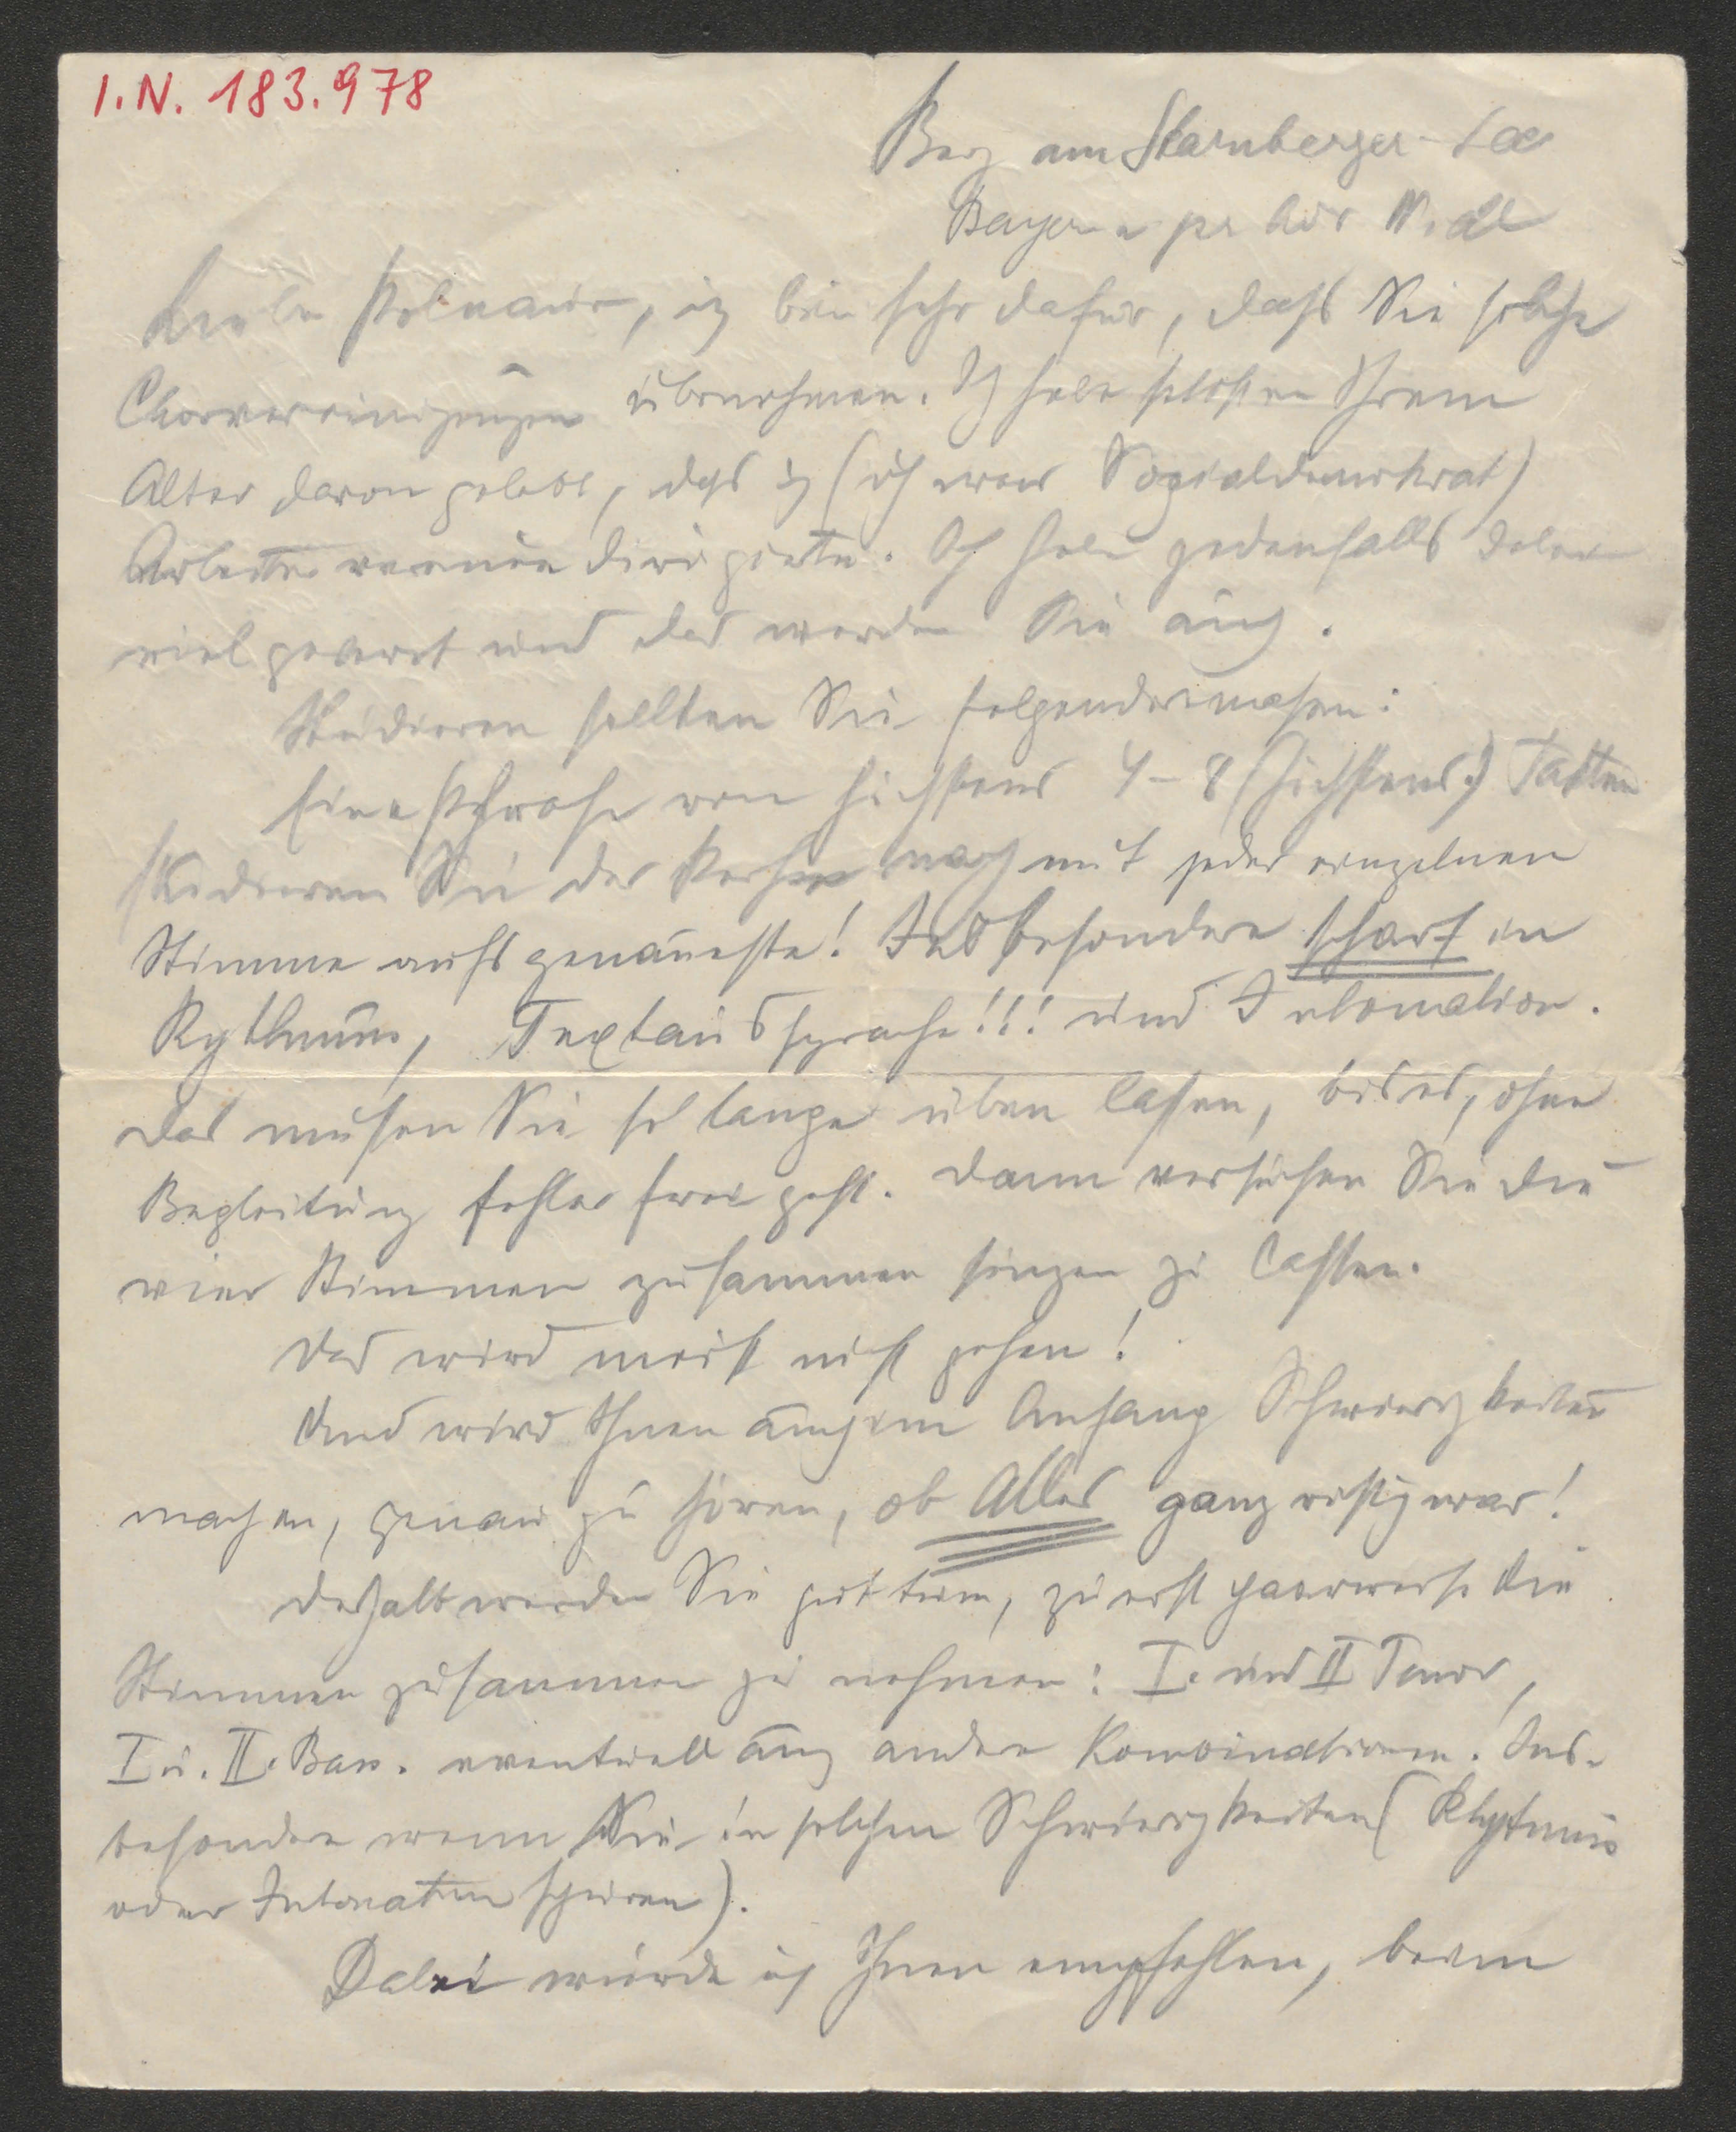 I.N. 183.978
Berg am Starnberger-See
Bayern
Lieber Polnauer, ich bin sehr dafür, dass Sie solche
Chorvereinigungen übernehmen. Ich habe selbst in Ihrem
Alter davon gelebt, dass ich (ich war Sozialdemokrat)
Arbeitervereine dirigierte. Ich habe jedenfalls dabei
viel gelernt und das werden Sie auch.
Studieren sollten Sie folgendermasen:
Eine Phrase von höchstens 4-8 (höchstens!) Takten
studieren Sie der Reihe nach mit jeder einzelnen
Stimme aufs genaueste! Insbesondere scharf in
Rythmus, Textaussprache!!! und Intonation.
Das müssen Sie so lange üben lassen, bis es, ohne
Begleitung fehlerfrei geht. Dann versuchen Sie die
vier Stimmen zusammen singen zu lassen.
Das wird meist nicht gehen!
Und wird Ihnen auch im Anfang Schwierigkeiten
machen, genau zu hören, ob Alles ganz richtig war!
Deshalb werden Sie gut tun, zuerst paarweise die
Stimmen zusammen zu nehmen: I. und II Tenor,
I u. II. Bass. eventuell auch andere Kombinationen. Ins-
besondere wenn Sie in solchen Schwierigkeiten (Rhytmus
oder Intonation spüren).
Dabei würde ich Ihnen empfehlen, beim